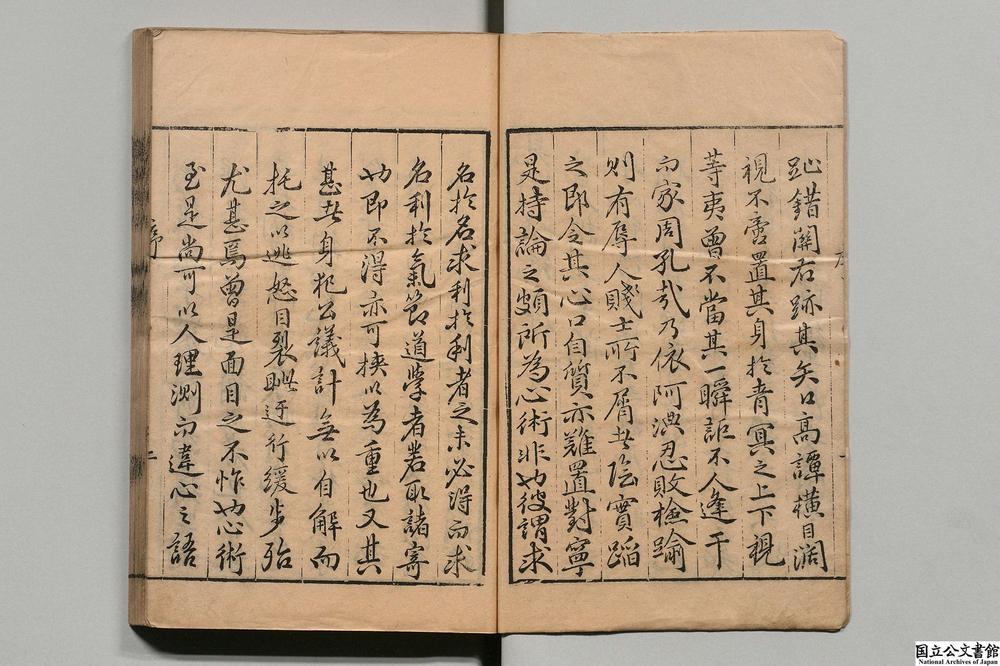 趾錯關右跡其矢口高譚橫目濶
視不啻置其身於青冥之上下視
等夷曾不當其一瞬詎不人逢干
而家周孔哉乃依阿淟忍敗檢踰
則有辱人賤士所不屑者陰實蹈
之即令其心口自質亦難置對寧
是持論之頗所為心術非也彼謂求
名於名求利於利者之未必得而求
名利於氣節道學者若取諸寄
也即不得亦可挾以為重也又其
甚者身犯公議計無以自解而
托之以逃怒目裂眦迂行緩步殆
尤甚焉曾是面目之不怍也心術
至是尚可以人理測而違心之語
序
二
国立公文書館
National Archives of Japan